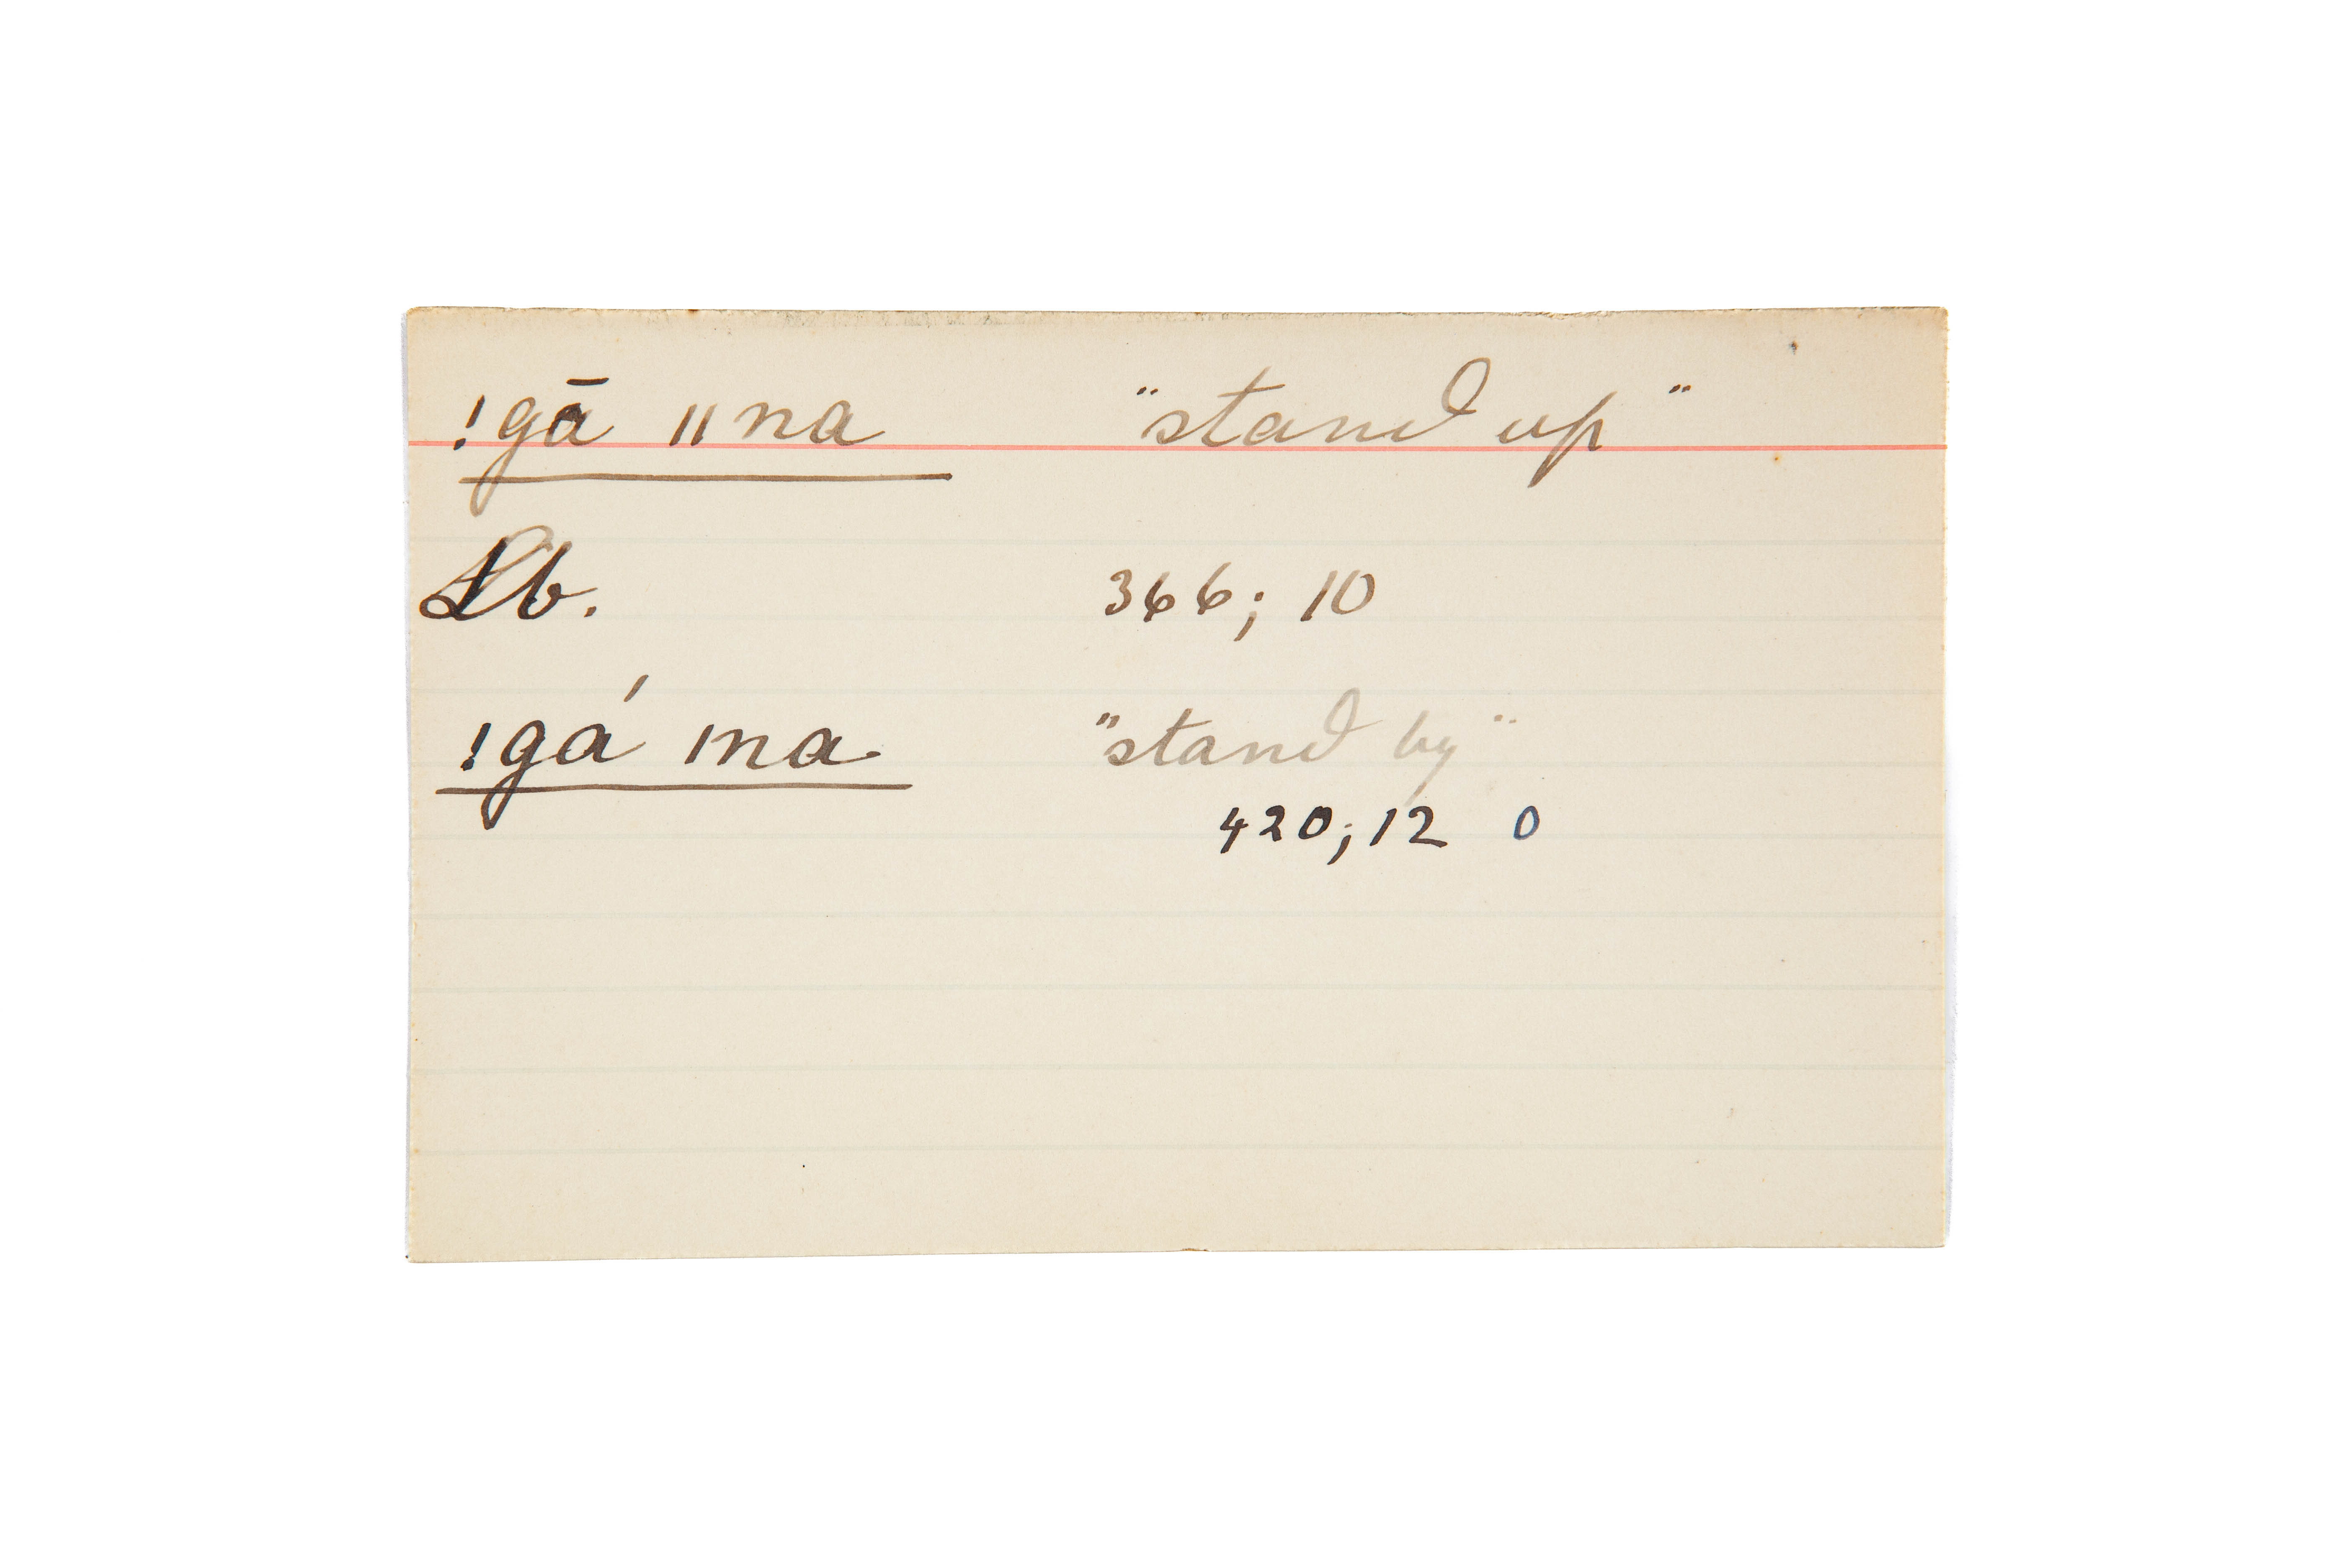 !gā ǁna "stand up"
Lb. 366; 10
!gá ǀna "stand by"
420; 12 0